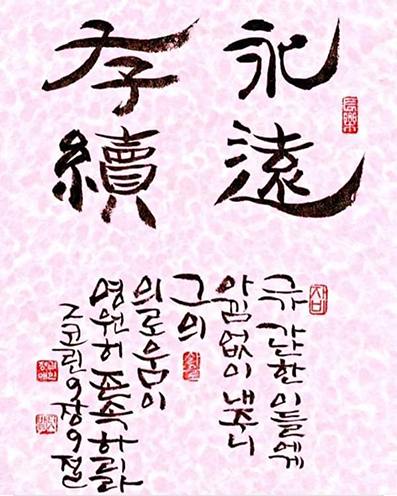 永遠
存續
長樂
가난한 이들에게
아낌없이 내주니
그의
의로움이
영원히 존속하리라
2코린 9장 9절